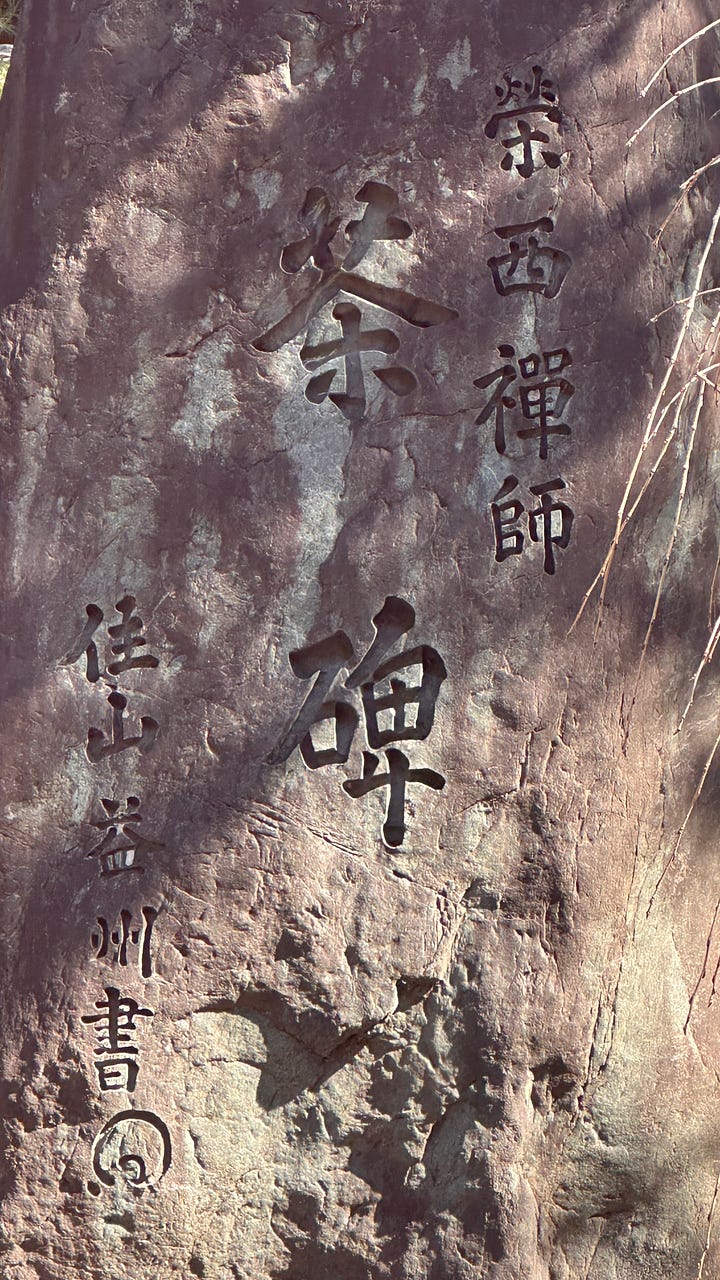 榮西禪師
茶碑
佳山益州書